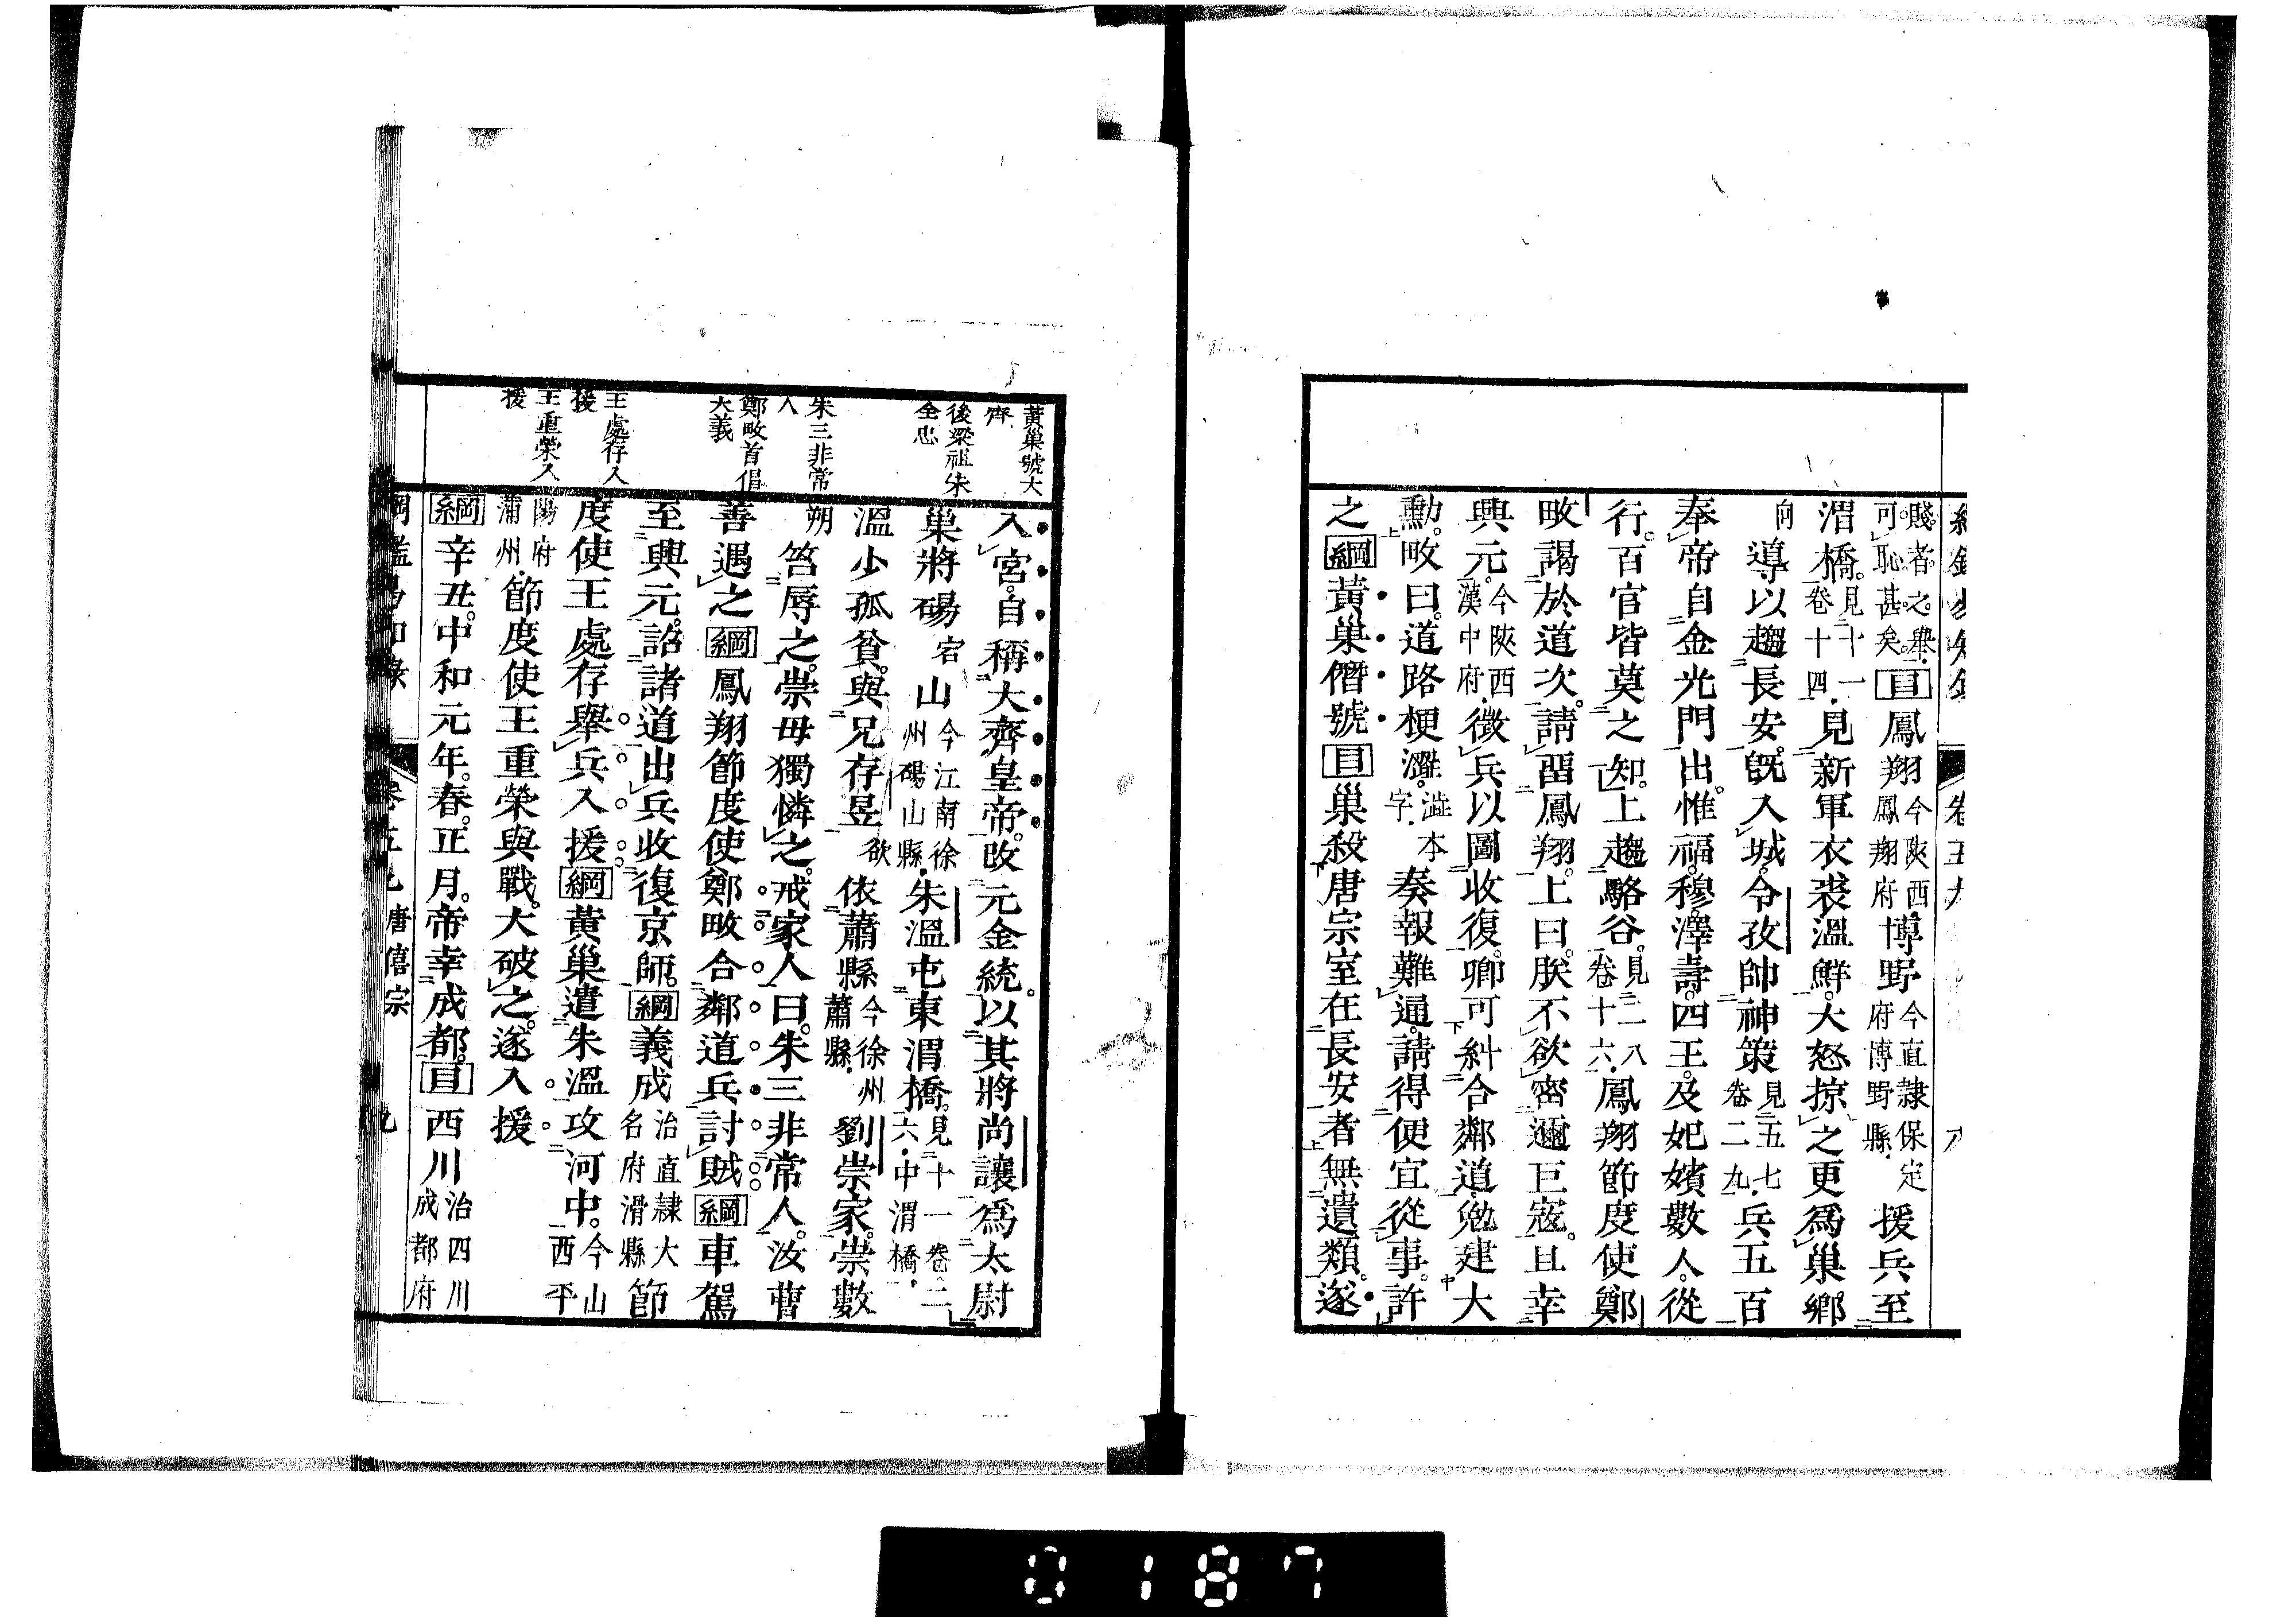 賤者之舉可恥甚矣。目鳳翔今陝西鳳翔府博野今直隸保定府博野縣援兵至
渭橋。見十一卷十四見新軍衣裘溫鮮。大怒掠之更爲巢鄉
向導以趨長安。旣入城。令孜帥神策見五七卷二九兵五百
奉帝自金光門出。惟福。穆。澤。壽。四王。及妃嬪數人。從
行。百官皆莫之知。上趨駱谷。見二八卷十六鳳翔節度使鄭
畋謁於道次。請畱鳳翔。上曰。朕不欲密邇巨寇。且幸
興元。今陝西漢中府徵兵以圖收復。卿可糾合鄰道。勉建大
勳。畋曰。道路梗澀。澁本字奏報難通。請得便宜從事。許
之綱黃巢僭號目巢殺唐宗室在長安者無遺類。遂
黃巢號大齊
後梁祖朱全忠
朱三非常人
鄭畋首倡大義
王處存入援
王重榮入援
入宮。自稱大齊皇帝。改元金統。以其將尚讓爲太尉
巢將碭宕山今江南徐州碭山縣朱溫屯東渭橋。見十一卷二六中渭橋
溫少孤貧。與兄存昱欲依蕭縣今徐州蕭縣劉崇家。崇數
朔笞辱之。崇母獨憐之。戒家人曰。朱三非常人。汝曹
善遇之綱鳳翔節度使鄭畋合鄰道兵討賊綱車駕
至興元。詔諸道出兵收復京師。綱義成治直隸大名府滑縣節
度使王處存舉兵入援。綱黃巢遣朱溫攻河中。今山西平
陽府蒲州節度使王重榮與戰。大破之。遂入援
綱辛丑。中和元年。春。正月。帝幸成都。目西川治四川成都府
卷五九 唐僖宗 九
0187